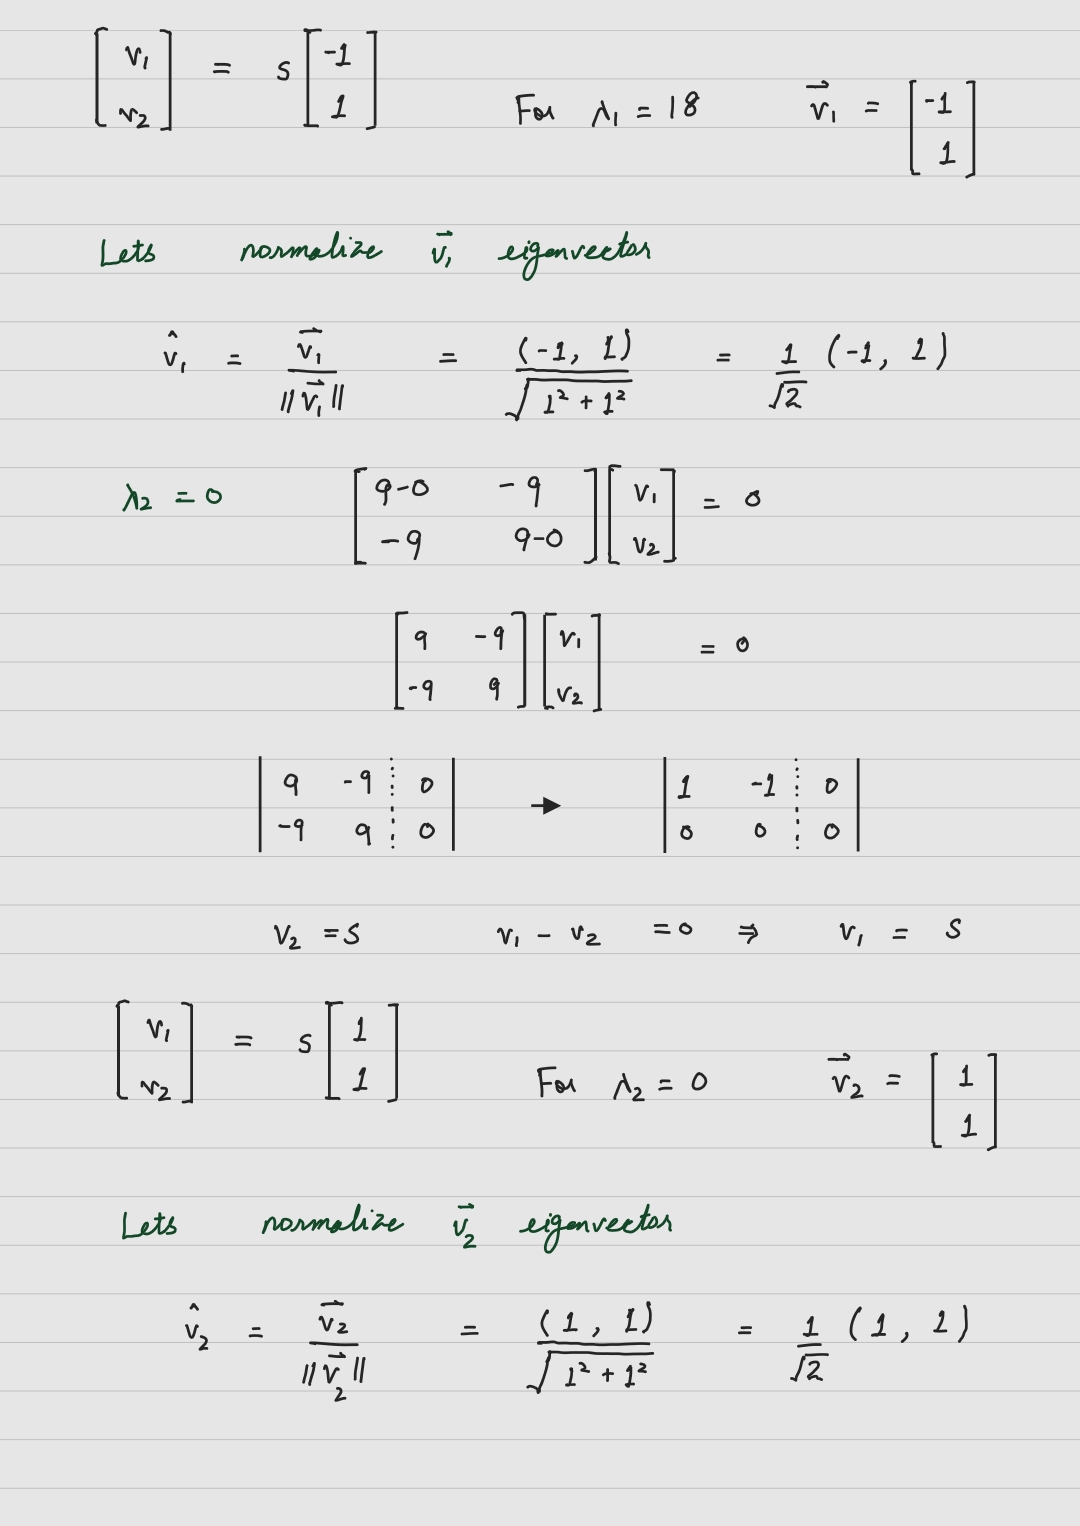 [v₁ v₂] = s [-1 1]
For λ₁ = 18 v⃗₁ = [-1 1]
Lets normalize v⃗₁ eigenvector
v̂₁ = v⃗₁ / ||v⃗₁|| = (-1, 1) / √(1² + 1²) = 1/√2 (-1, 1)
λ₂ = 0 [9-0 -9; -9 9-0] [v₁ v₂] = 0
[9 -9; -9 9] [v₁ v₂] = 0
|9 -9 ⋮ 0; -9 9 ⋮ 0| → |1 -1 ⋮ 0; 0 0 ⋮ 0|
v₂ = s v₁ - v₂ = 0 ⇒ v₁ = s
[v₁ v₂] = s [1 1]
For λ₂ = 0 v⃗₂ = [1 1]
Lets normalize v⃗₂ eigenvector
v̂₂ = v⃗₂ / ||v⃗₂|| = (1, 1) / √(1² + 1²) = 1/√2 (1, 1)